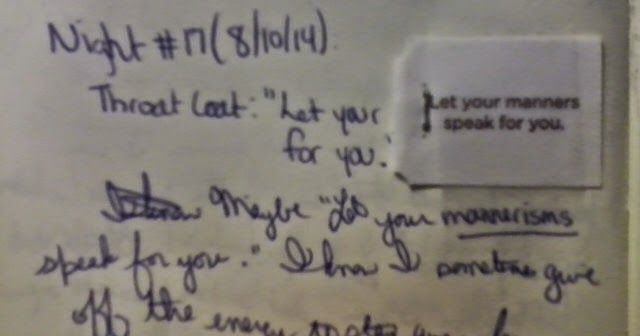 Night #17 (8/10/14)
Throat Coat: "Let your
for you."
Let your manners
speak for you.
Maybe "Let your mannerisms
speak for you." I know I sometimes give
off the energy